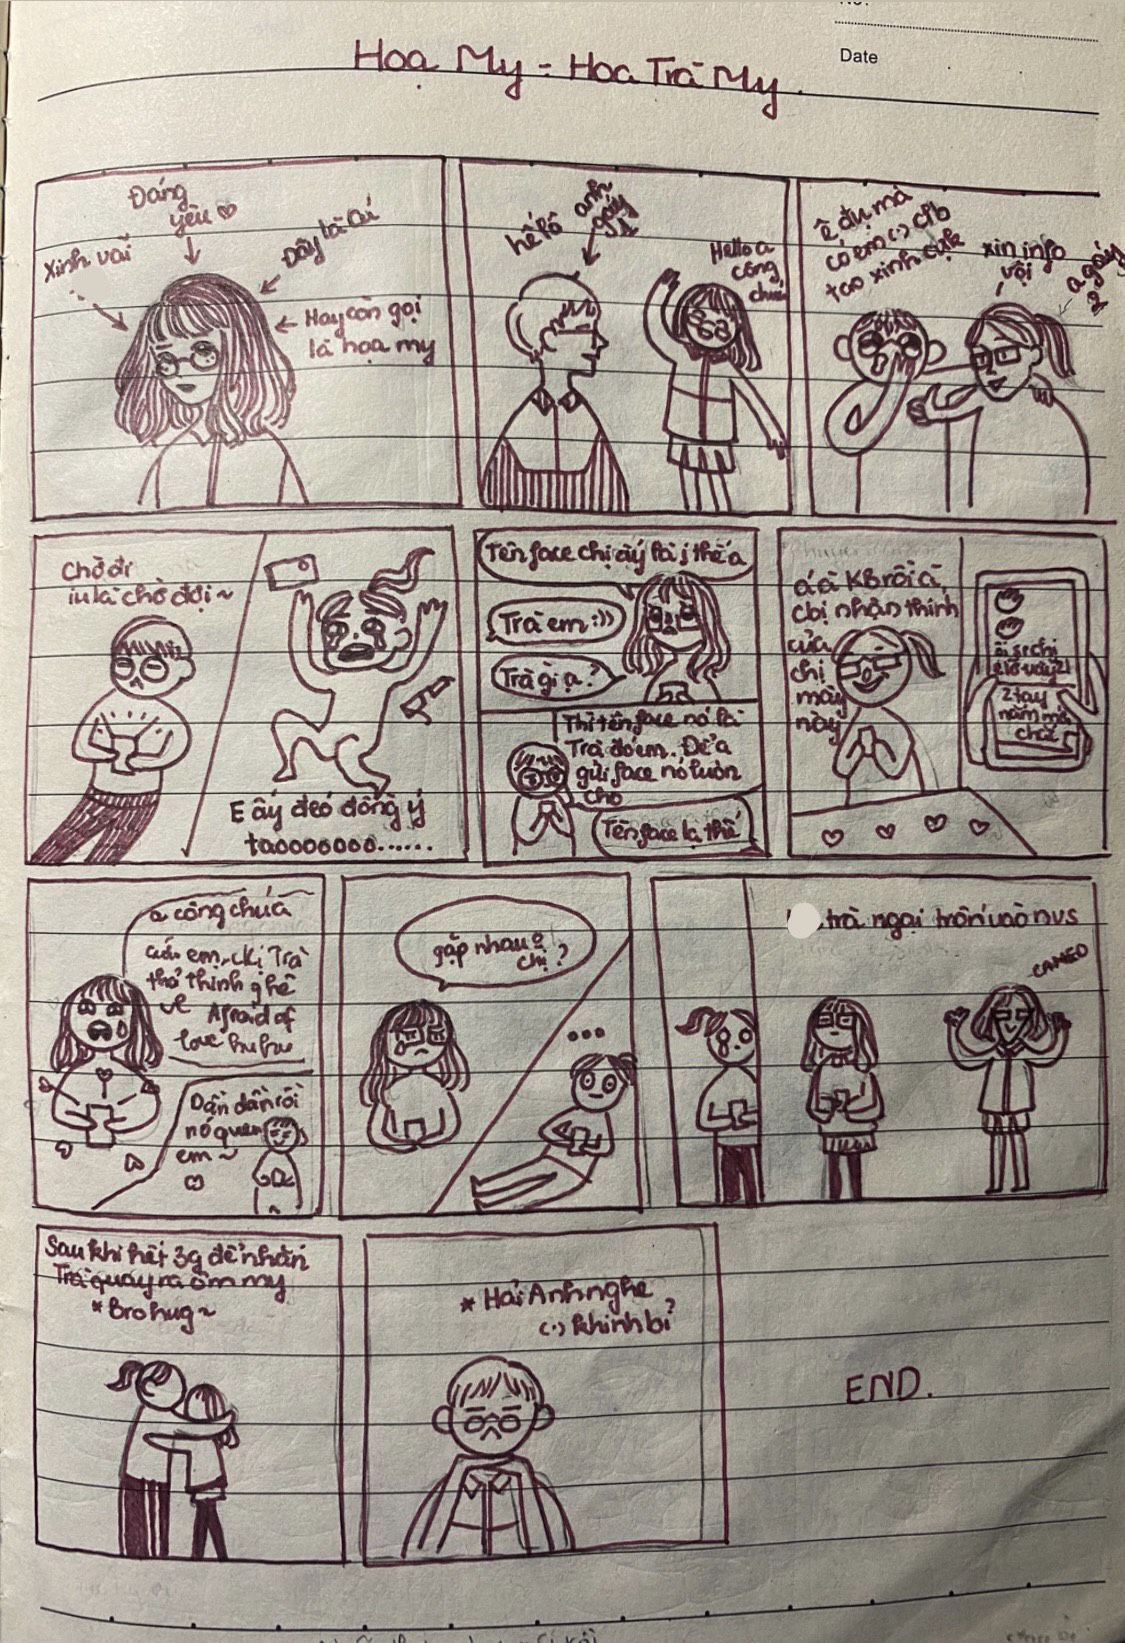 Date
Hoạ My - Hoa Trà My.
Đáng
yêu ♡
Xinh vãi
Đây là
Hay còn gọi
là hoạ my
hế lô
anh
gáy
1
Hello a
công
chúa
ê đụ má
có em (.) clb
tao xinh
xin info
vội
a gáy
2
Chờ đi
iu là chờ đợi ~
E ấy đéo đồng ý
taoooooooo......
Tên face chị ấy là j thế ạ
Trà em :))
Trà gì ạ?
Thì tên face nó là
Trà đó em. Để a
gửi face nó luôn
cho
Tên face lạ thế
á à KB rồi à,
chị nhận thính
của
chị
mày
này
2 tay
nắm mà
chữ
a công chúa
cứu em, chị Trà
thả thính ghê
Afraid of
love huhu
Dần dần rồi
nó quen
em ~
♡
gặp nhau
chị?
...
trà ngại trốn vào nvs
CAMEO
Sau khi hết 3g để nhắn
Trà quay ra ôm my
*Bro hug ~
* Hải Anh nghe
(.) khinh bỉ
END.